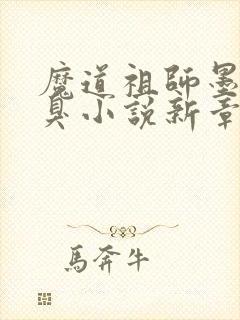 魔道祖師墨
臭小說新章
馬奔牛